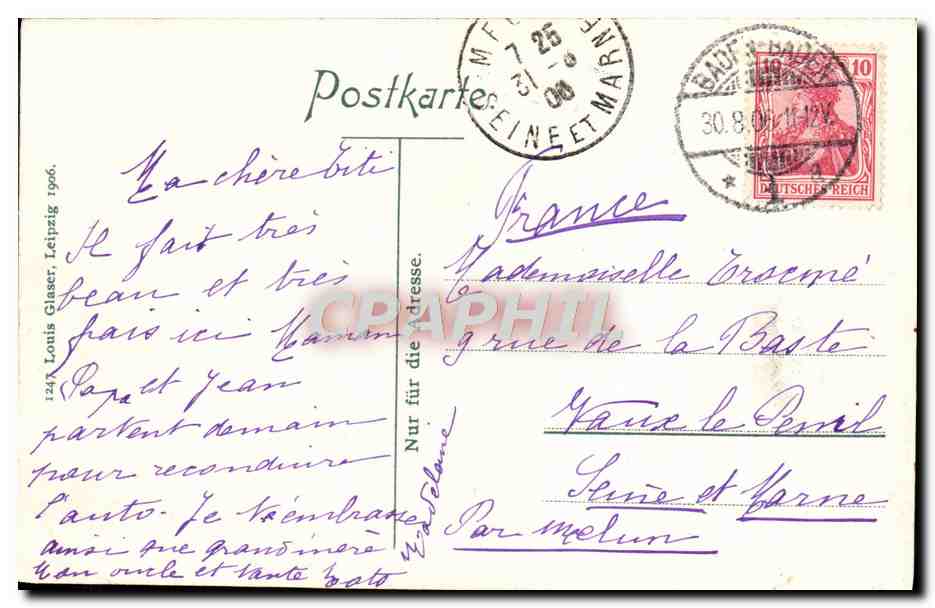 Postkarte
MELUN
7 25
31 -8
06
SEINE ET MARNE
BADEN-BADEN
30.8.06. 11-12V.
* 1 a
10 10
DEUTSCHES REICH
1247 Louis Glaser, Leipzig 1906.
Nur für die Adresse.
CPAPHIL
Ma chère Titi
Il fait très
beau et très
frais ici Maman
Papa et Jean
partent demain
pour reconduire
l'auto. Je t'embrasse
ainsi que grandmère
Mon oncle et tante
Madeleine
France
Mademoiselle Trocmé
9 rue de la Baste
Vaux le Penil
Seine et Marne
Par Melun